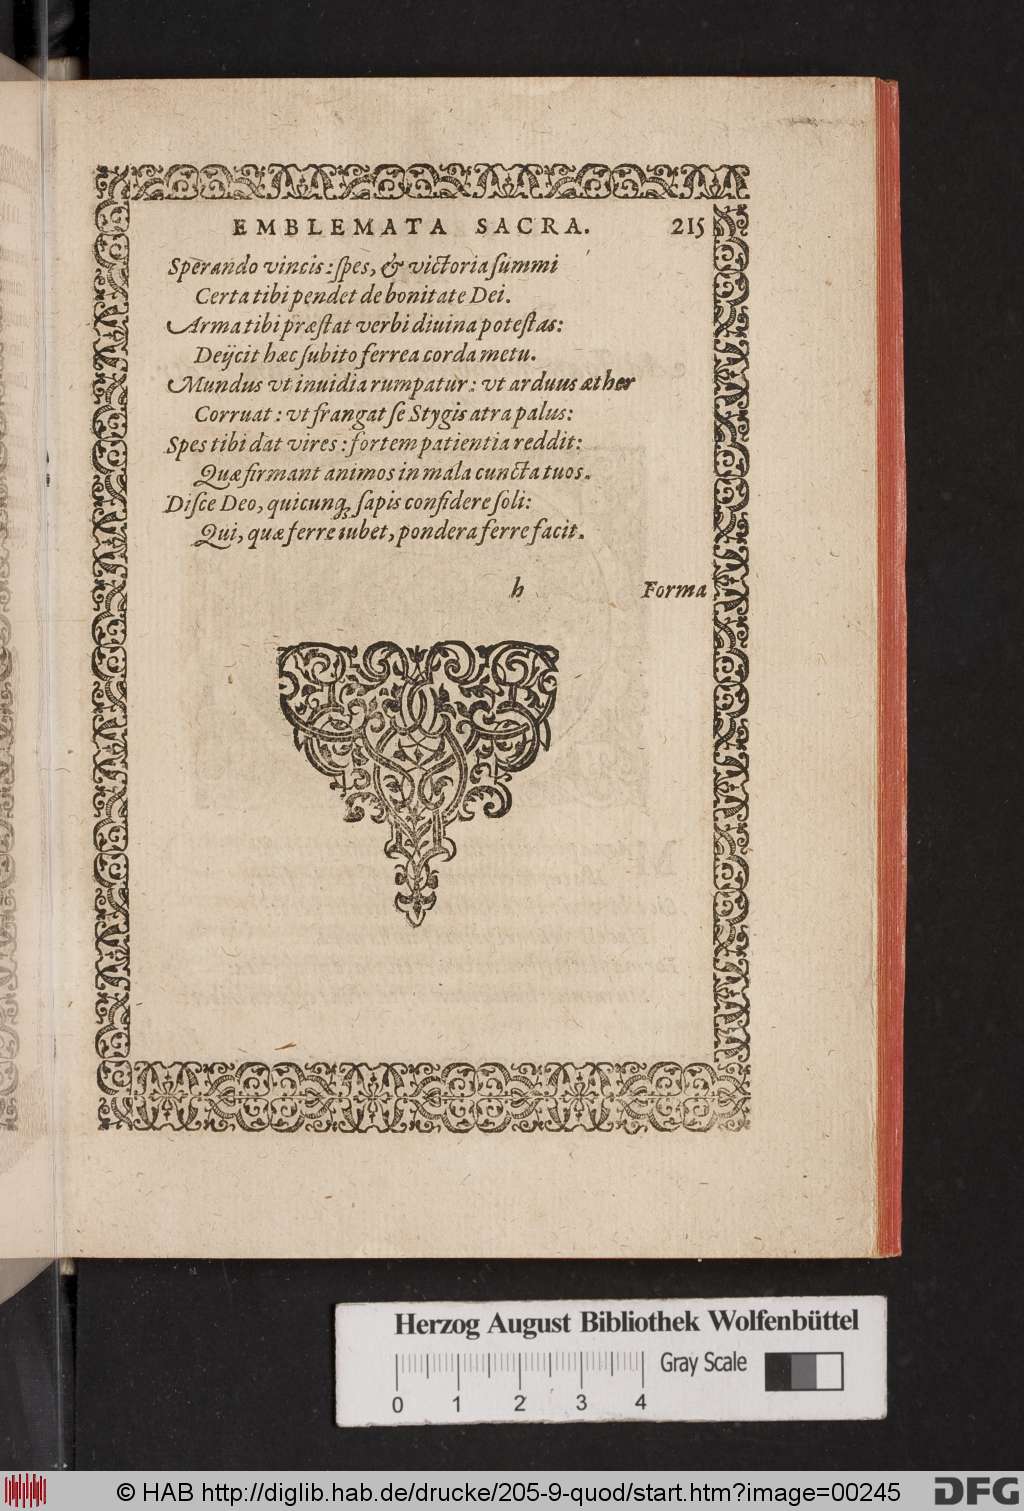 EMBLEMATA SACRA. 215
Sperando vincis: ſpes, & victoria ſummi
Certa tibi pendet de bonitate Dei.
Arma tibi præſtat verbi diuina poteſtas:
Deijcit hæc ſubito ferrea corda metu.
Mundus vt inuidia rumpatur: vt arduus æther
Corruat: vt frangat ſe Stygis atra palus:
Spes tibi dat vires: fortem patientia reddit:
Quæ firmant animos in mala cuncta tuos.
Diſce Deo, quicunq; ſapis confidere ſoli:
Qui, quæ ferre iubet, pondera ferre facit.
h Forma
Herzog August Bibliothek Wolfenbüttel
Gray Scale
0 1 2 3 4
© HAB http://diglib.hab.de/drucke/205-9-quod/start.htm?image=00245
DFG